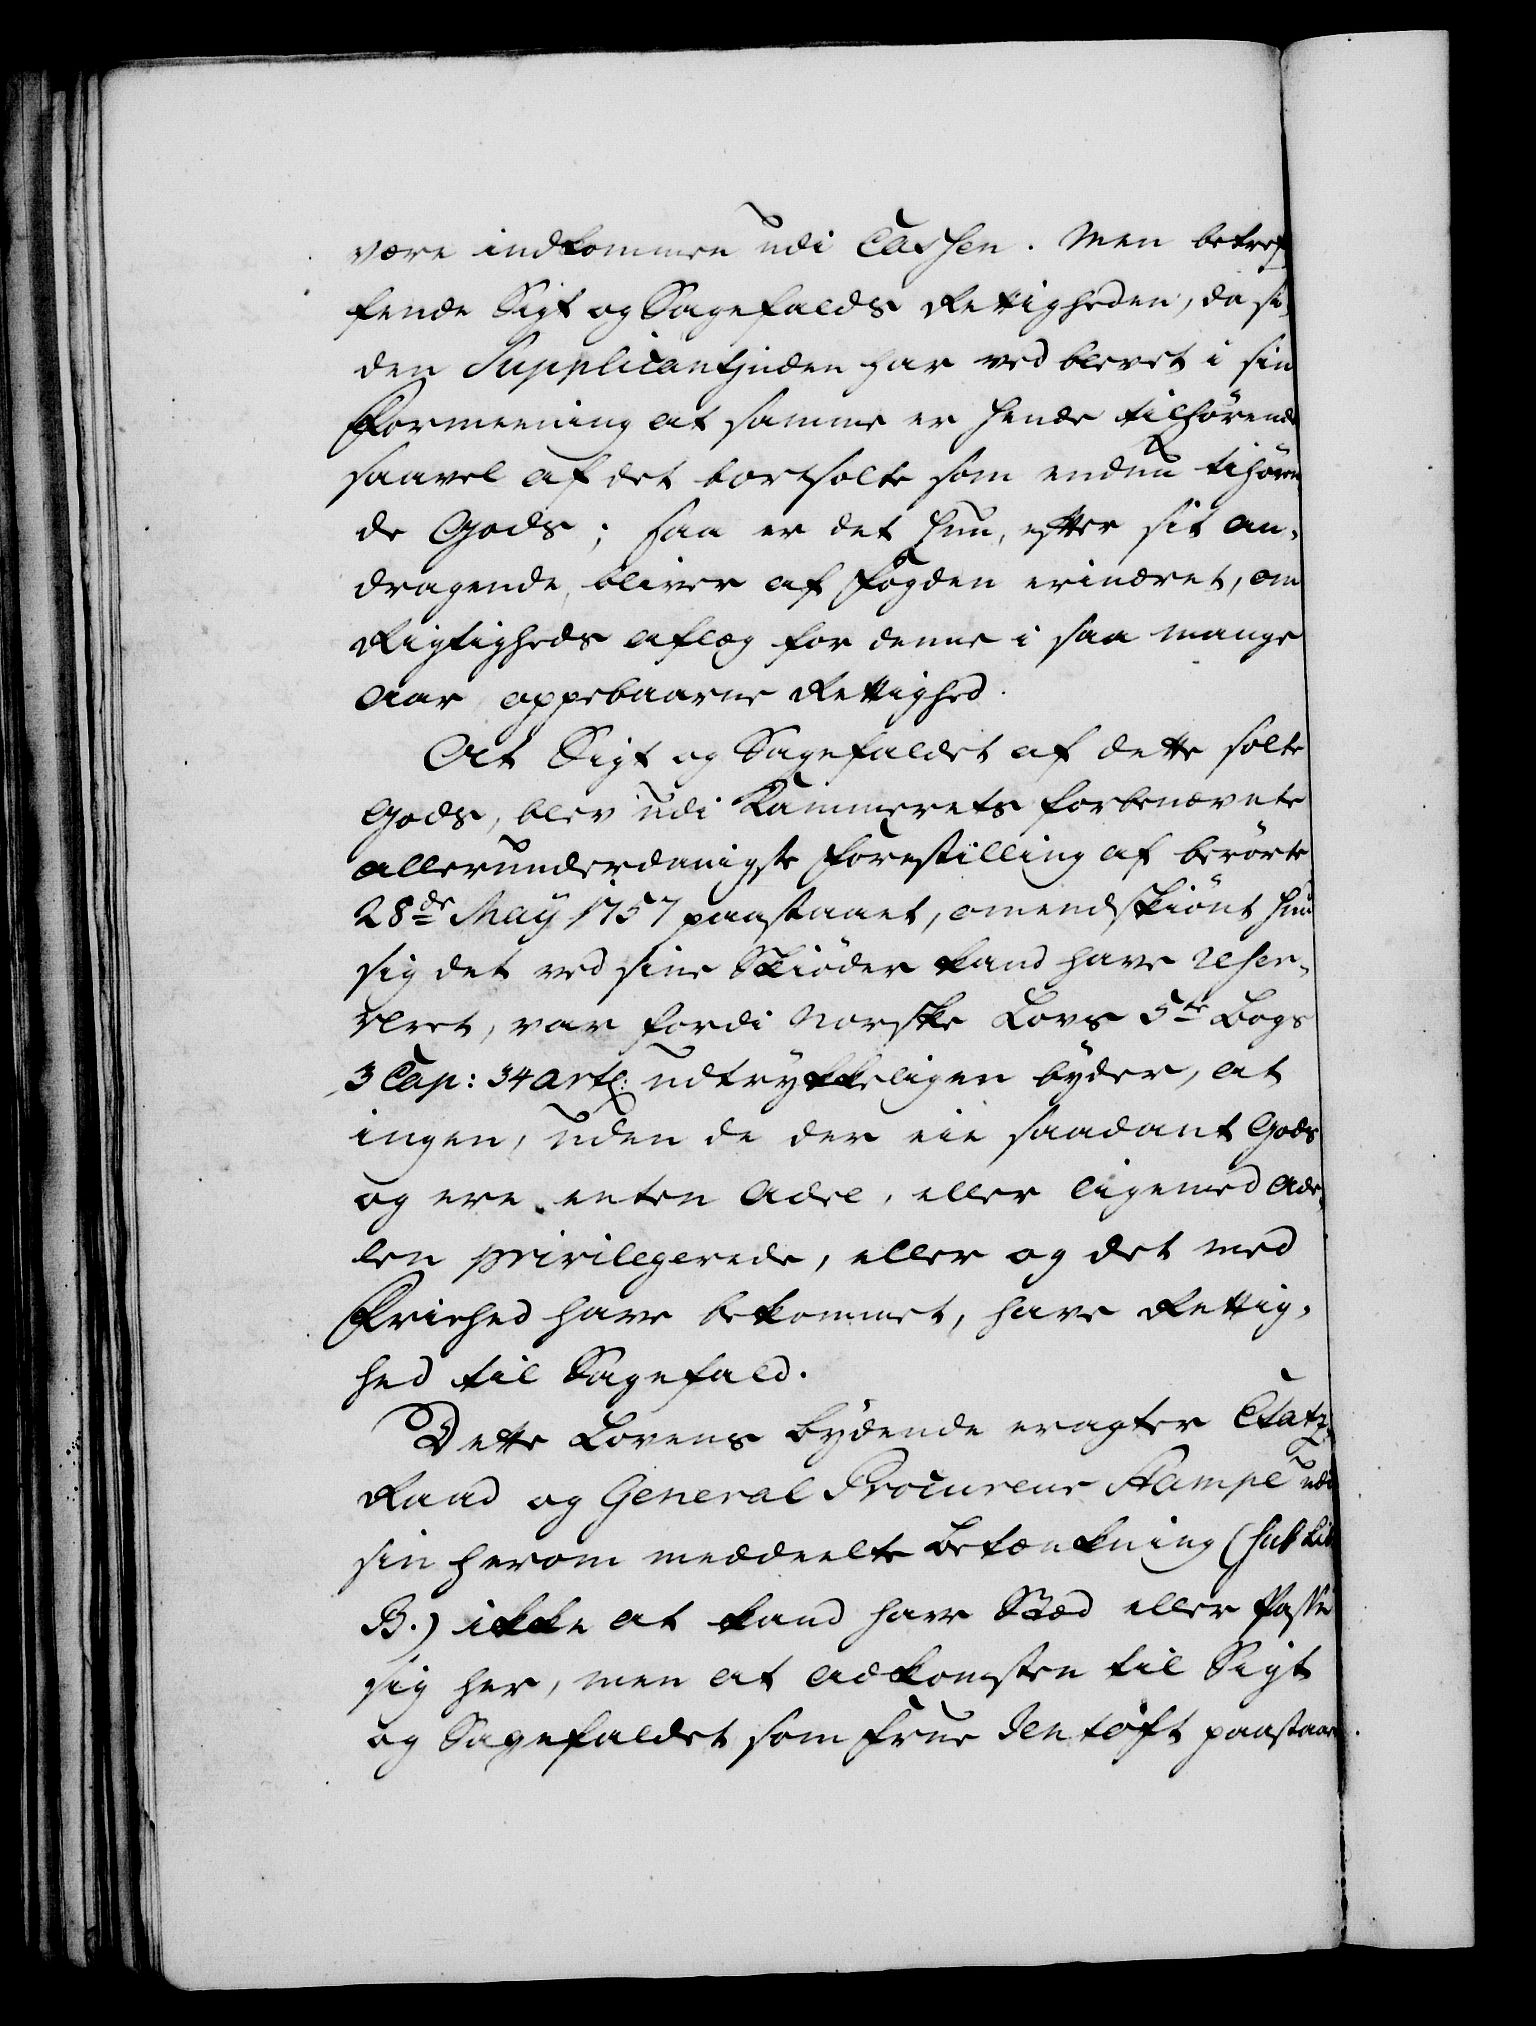 være indkommen udi Cassen. Men betref
fende Sigt og Sagefalds Rettigheden, da si,
den Supplicantjnden har ved blevet i sin
Formeening at samme er hende tilhörende
saavel af det bortsolte som endnu tihören
de Gods; saa er det hun, efter sit an,
dragende, bliver af Fogden erindret, om
Rigtigheds aflæg for denne i saa mange
Aar oppebaarne Rettighed.
At Sigt og Sagefaldet af dette solte
Gods, blev udi Kammerets forbenævnte
allerunderdanigste Forestilling af berörte
28de May 1757 paastaaet, omendskiönt hun
sig det ved sine Skiöder kand have reser,
veret, var fordi Norske Lovs 5te Bogs
3 Cap: 34 Artl: udtrÿkkeligen bÿder, at
ingen, uden de der eie saadant Gods
og ere enten Adel, eller ligemed Ade,
len privilegerede, eller og det med
Friehed have bekommet, have Rettig,
hed til Sagefald.
Dette Lovens bÿdende eragter Etatz,
Raad og General Procureur Stampe udi
sin herom meddeelte Betænkning (sub Lit
B.) ikke at kand have Stæd eller Passe
sig her, men at adkomsten til Sigt
og Sagefaldet som Frue Jentoft paastaar